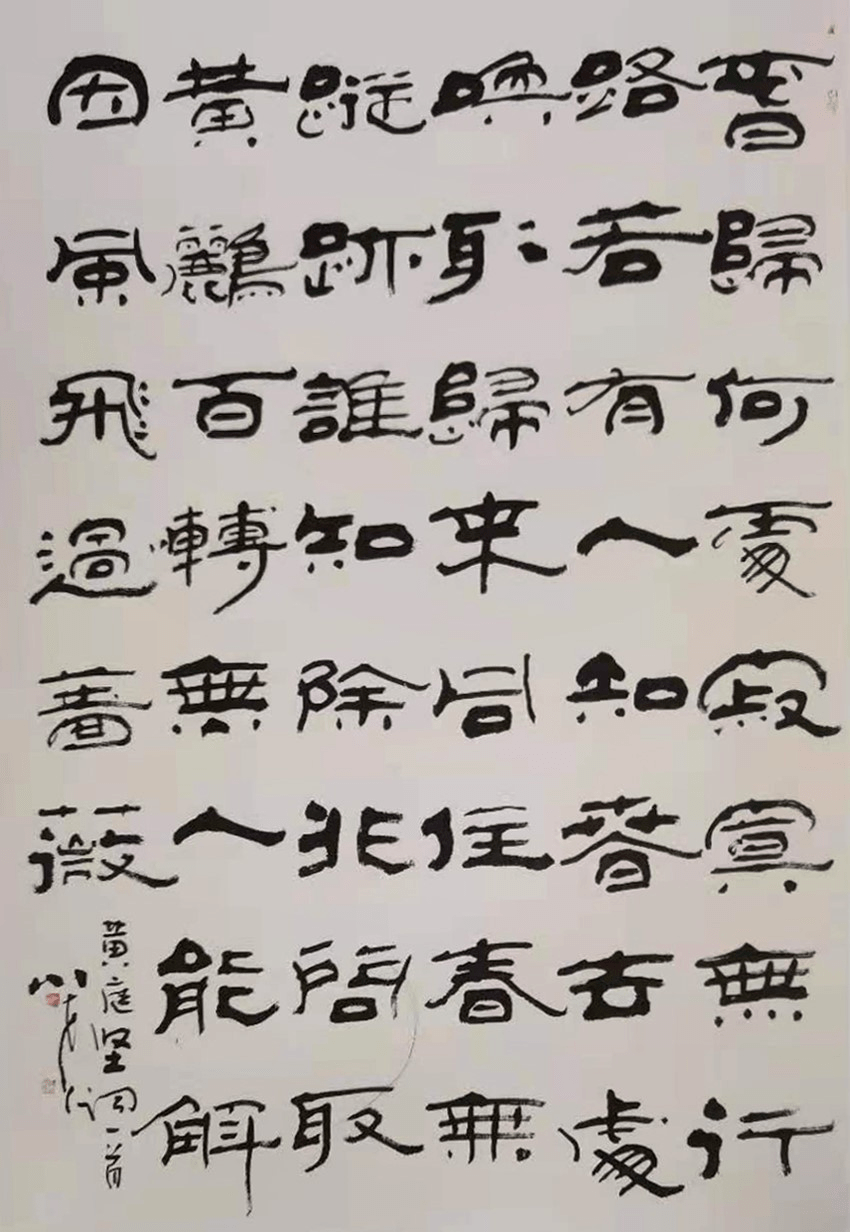 春歸何處寂寞無行
路若有人知春去處
喚取歸來同住春無
蹤跡誰知除非問取
黄鸝百囀無人能解
因風飛過薔薇
黄庭坚词一首